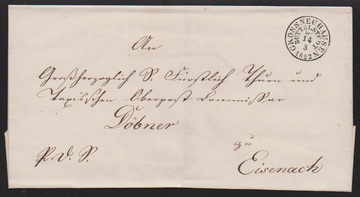 GROSSNEUHAUSEN
BUTTELSTEDT
14
3
An
Großherzoglich S. Fürstlich Thurn und
Taxisschen Oberpost Commissar
Döbner
P. D. S.
zu
Eisenach